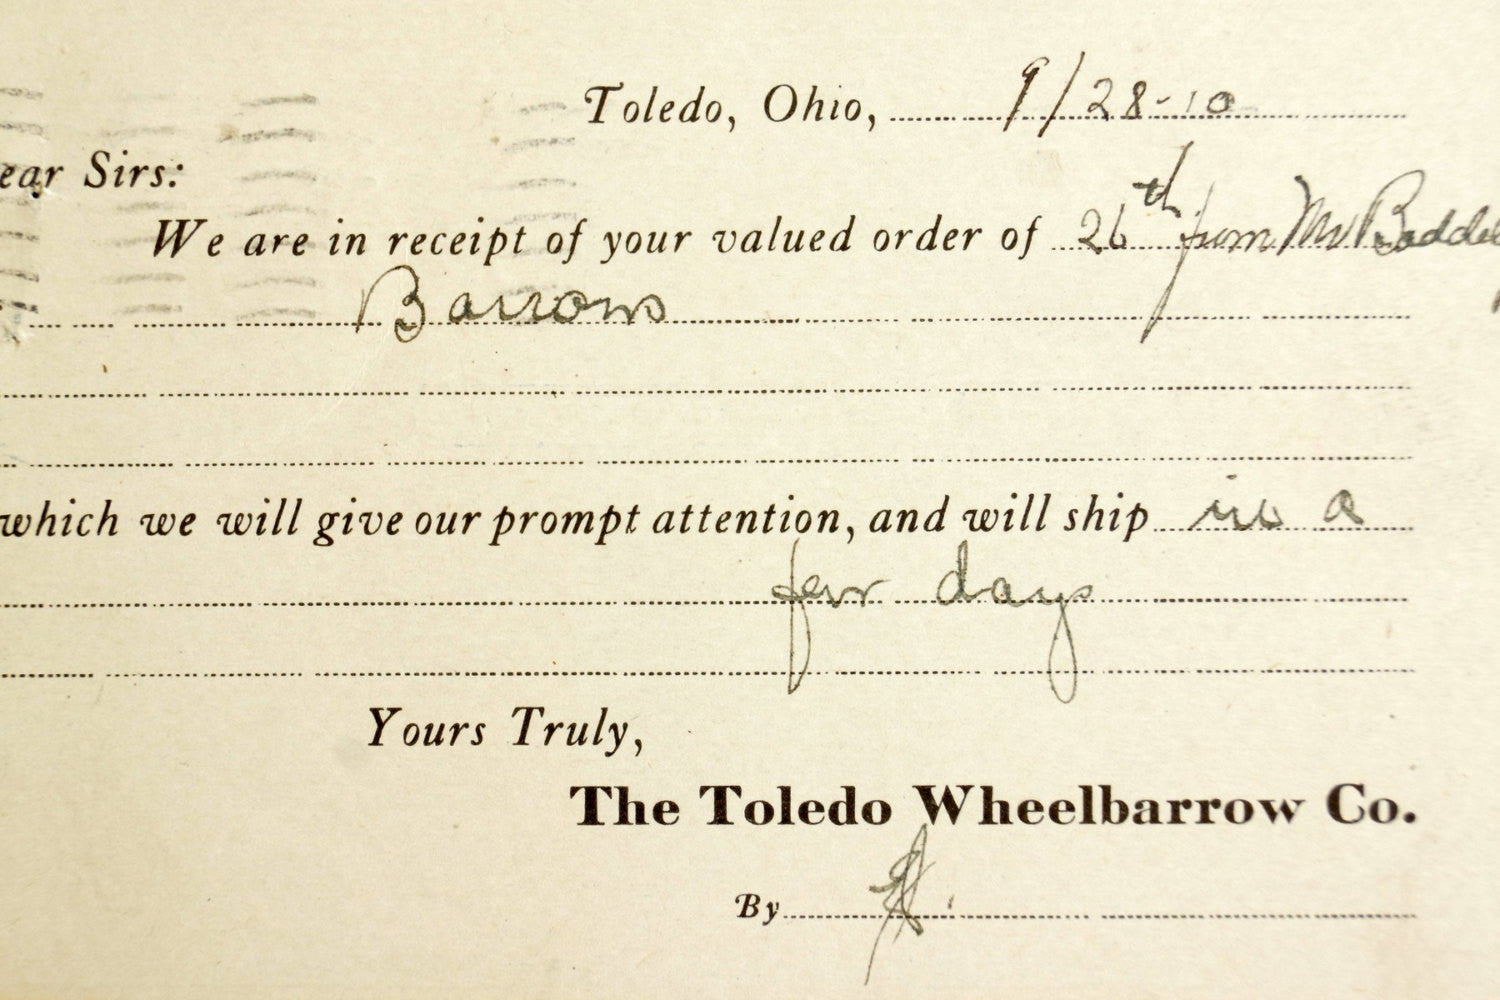 Toledo, Ohio, 9/28-10
ear Sirs:
We are in receipt of your valued order of 26th from Mr
Barrows
which we will give our prompt attention, and will ship in a
few days
Yours Truly,
The Toledo Wheelbarrow Co.
By